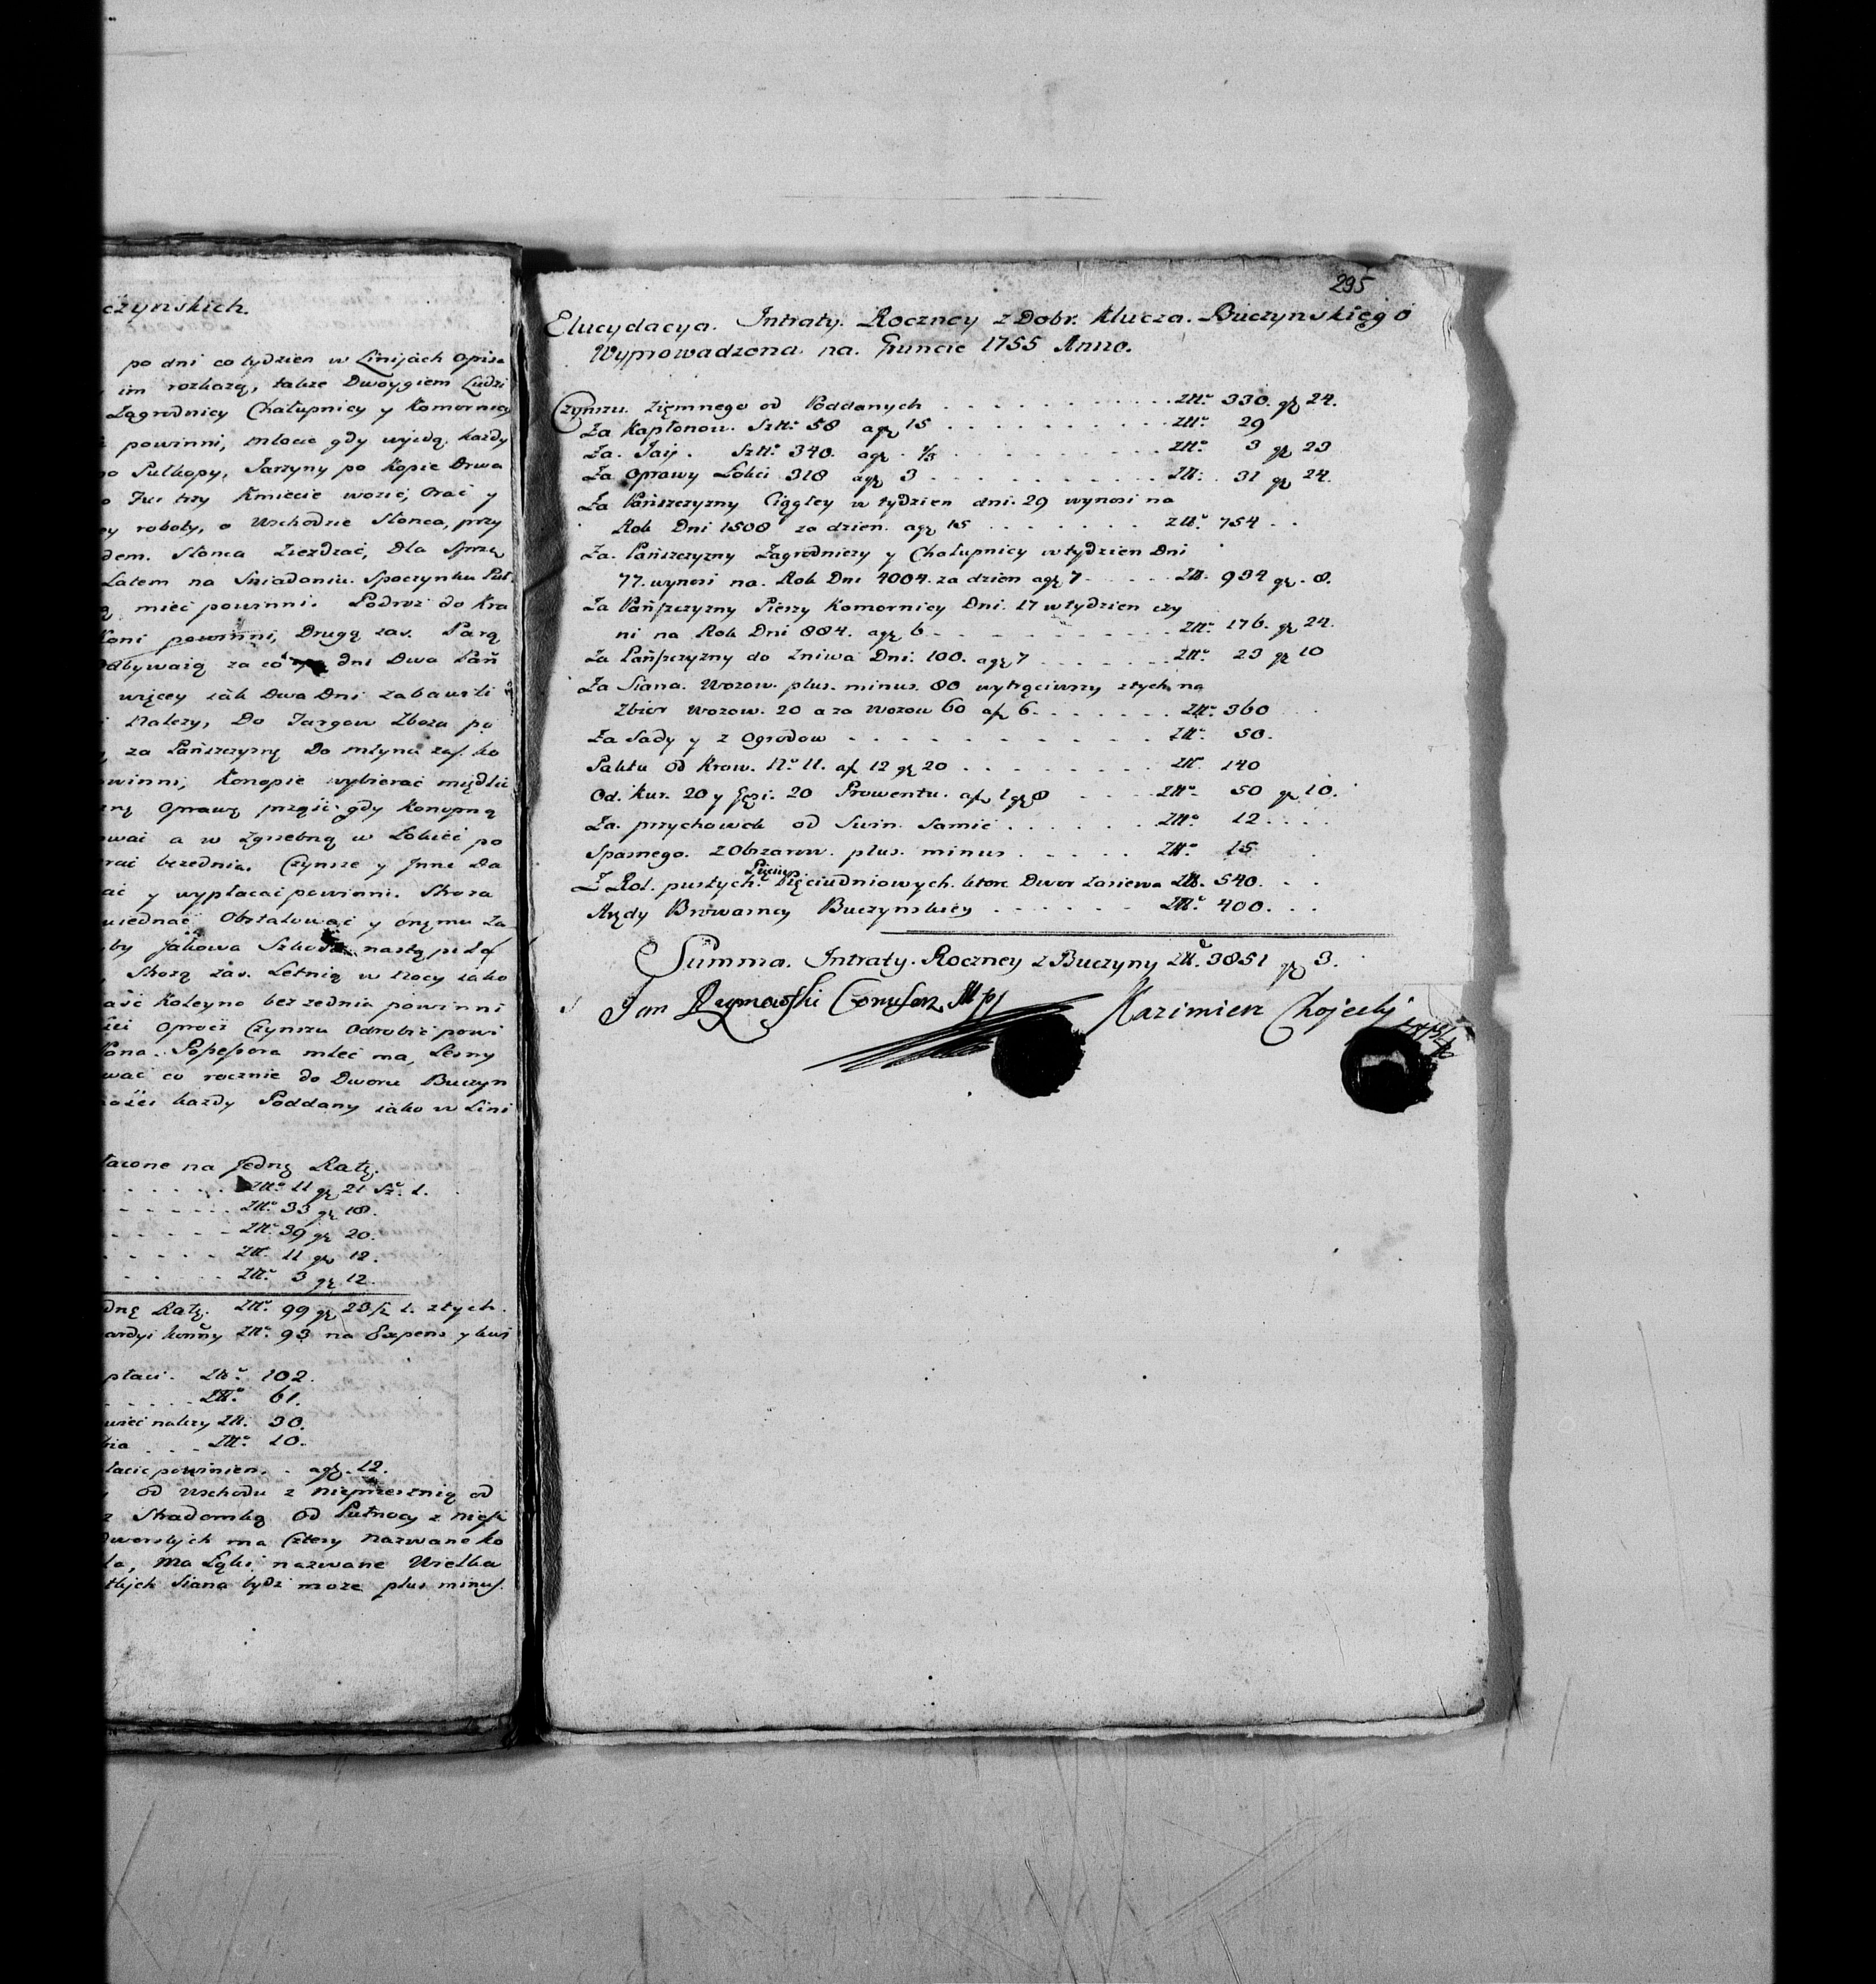 czynskich.
po dni co tydzien w Linijach opisa
im rozkażą, także Dwoygiem Ludzi
Zagrodnicy Chałupnicy y Komornicy
powinni, młocic gdy wyjdą. każdy
Pułkopy, Jarzyny po Kopie Drwa
trzy Kmiecie wozić, Orać y
roboty, o Wschodzie Słonca, przy
dem. Słonca Ziezdzać, Dla Sprzę
Latem na Sniadaniu. Spoczynku Puł
mieć powinni. Podroż do Kra
koni powinni, Drugą zas. Parą
odbywaią za co dni Dwa Pań
więcey iak Dwa Dni zabawili
Nalezy, Do Targow Zboza po
za Pańszczyznę Do młyna zas. ko
owinni, Konopie wybierać międlić
Oprawę prząść gdy Konopną
ować a w Zgrzebną w Łokieć po
rać bezednia. Czynsze y Jnne Da
ać y wypłacać powinni. Stroza
uiednać Obstalować y onemu Za
by Jakowa Szkoda nastąpiła
Strozą zas. Letnią w Nocy iako
Koleyno bez zednia powinni
oprocz Czynszu Odrobić powi
mleć ma, Lesny
wać co rocznie do Dworu Buczyn
ności kazdy Poddany iako w Lini
na Jedną Ratę.
. . . . . ZłŁ. 11 gr 21 sz. 1.
. . . . . Złł. 33 gr 18.
. . . . . Złł. 39 gr 20.
. . . . . Złł. 11 gr 12.
. . . . . Złł. 3 gr 12.
dnę Ratę. Złł. 99 gr 23 sz 1. ztych.
konny Złł. 93 na Expens y kwi
płaci. Złł. 102.
. . . . . Złł. 61.
nalezy Złł. 30.
. . . Złł. 10.
powinien. . a gr. 12.
od Wschodu z Nieprzesnią od
z Stradomką Od Pułnocy z
dworskich ma Cztery nazwane ko
la, ma Łąki nazwane Wielka
Siana bydz moze plus minus.
295
Elucydacya. Intraty. Roczney z Dobr. Klucza. Buczynskiego
Wyprowadzona. na. Gruncie 1755 Anno.
Czynszu. Ziemnego od Poddanych . . . . . Złł. 330. gr 24.
Za Kapłonow. Sztt. 58 a gr 15 . . . . . Złł. 29
Za. Jaij. Sztt. 340. a gr. 1/3 . . . . . Złł. 3 gr 23
Za Oprawy Łokci 318 a gr 3 . . . . . Złł. 31 gr 24.
Za Pańszczyzny Ciągłey w tydzien dni. 29 wynosi na
Rok Dni 1508 za dzien. a gr 15 . . . . . Złł. 754 . .
Za. Pańszczyzny Zagrodniczy y Chałupnicy w tydzien Dni
77. wynosi na. Rok Dni 4004. za dzien a gr 7 . . . . . Złł. 934 gr. 8.
Za Pańszczyzny Pieszy Komornicy Dni. 17 w tydzien czy
ni na Rok Dni 884. a gr 6 . . . . . Złł. 176. gr 24.
Za Pańszczyzny do Zniwa Dni. 100. a gr 7 . . . . . Złł. 23 gr 10
Za Siana. Wozow. plus. minus. 80 wytrąciwszy ztych na
Zbior Wozow. 20 a za Wozow 60 a f 6. . . . . . Złł. 360
Za Sady y z Ogrodow . . . . . Złł. 50.
Paktu Od Krow. N° 11. a f 12 gr 20 . . . . . Złł. 140
Od. kur. 20 y Gęsi. 20 Prowentu. a f 1 gr 8 . . . . Złł. 50 gr 10.
Za. przychowek od Swin. Samic . . . . . Złł. 12 . . . .
Spasnego. z Obszarow. plus. minus . . . . . Złł. 15
Z Rol. pustych. Pięciu. Pięciudniowych. ktore Dwor Zasiewa Złł. 540. . .
Arędy Browarney Buczynskiey . . . . . Złł. 400. . .
Summa. Intraty. Roczney z Buczyny Złł. 3851 gr 3.
Jan Mp
Kazimierz Chojecki